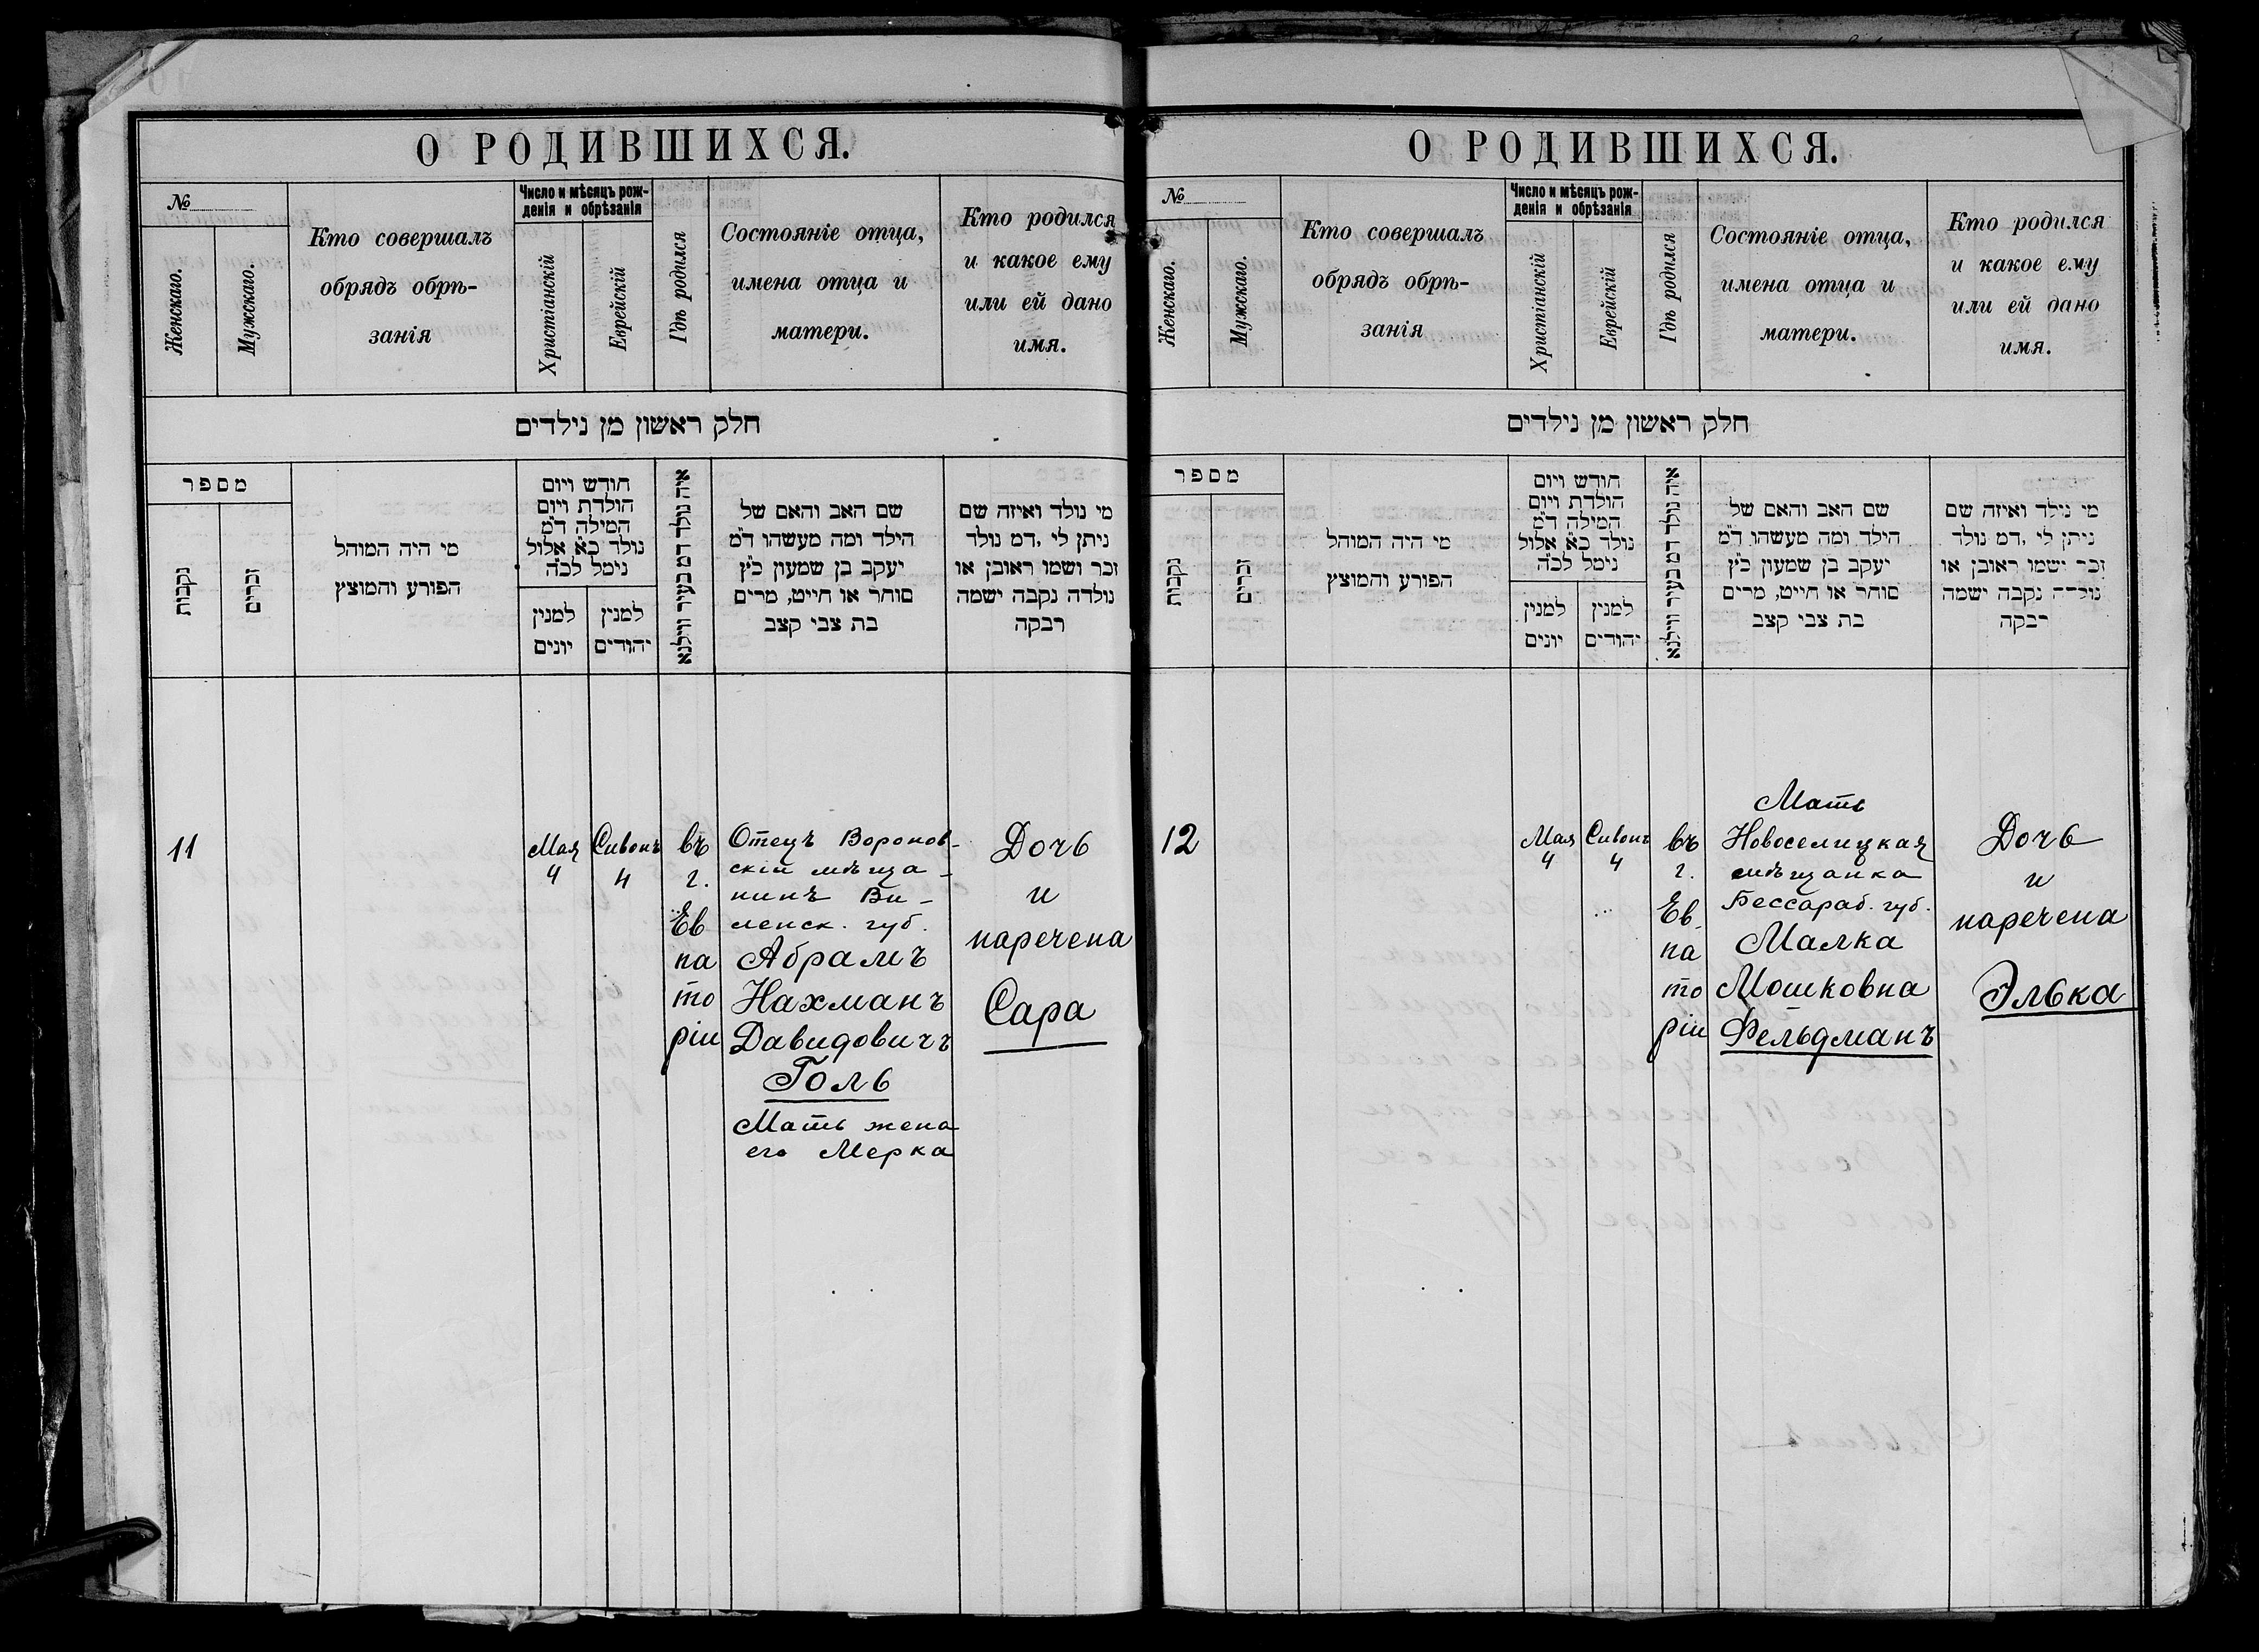 О РОДИВШИХСЯ.
№
Женскаго.
Мужскаго.
Кто совершалъ
обрядъ обрѣ-
занія
Число и мѣсяцъ рож-
денія и обрѣзанія
Христіанскій
Еврейскій
Гдѣ родился
Состояніе отца,
имена отца и
матери.
Кто родился
и какое ему
или ей дано
имя.
חלק ראשון מן נילדים
מספר
נקבות
זכרים
מי היה המוהל
הפורע והמוצץ
חודש ויום
הולדת ויום
המילה ד״מ
נולד כ״א אלול
נימל לכ״ה
למנין
יונים
למנין
יהודים
איה נולד דמ בעיר ווילנא
שם האב והאם של
הילד ומה מעשהו ד״מ
יעקב בן שמעון כ״ץ
סוחר או חייט, מרים
בת צבי קצב
מי נולד ואיזה שם
ניתן לי ,דמ נולד
זכר ושמו ראובן או
נולדה נקבה ישמה
רבקה
11
Мая
4
Сивонъ
4
въ
г.
Ев
па
то
ріи
Отецъ Воронов-
скій мѣща-
нинъ Ви-
ленск. губ.
Абрамъ
Нахманъ
Давидовичъ
Голь
Мать жена
его Мерка
Дочь
и
наречена
Сара
О РОДИВШИХСЯ.
№
Женскаго.
Мужскаго.
Кто совершалъ
обрядъ обрѣ-
занія
Число и мѣсяцъ рож-
денія и обрѣзанія
Христіанскій
Еврейскій
Гдѣ родился
Состояніе отца,
имена отца и
матери.
Кто родился
и какое ему
или ей дано
имя.
חלק ראשון מן נילדים
מספר
נקבות
זכרים
מי היה המוהל
הפורע והמוצץ
חודש ויום
הולדת ויום
המילה ד״מ
נולד כ״א אלול
נימל לכ״ה
למנין
יונים
למנין
יהודים
איה נולד דמ בעיר ווילנא
שם האב והאם של
הילד ומה מעשהו ד״מ
יעקב בן שמעון כ״ץ
סוחר או חייט, מרים
בת צבי קצב
מי נילד ואיזה שם
ניתן לי ,דמ נולד
זכר ישמו ראובן או
נולדה נקבה ישמה
רבקה
12
Мая
4
Сивонъ
4
въ
г.
Ев.
па
то
ріи
Мать
Новоселицкая
мѣщанка
Бессараб. губ.
Малка
Мошковна
Фельдманъ
Дочь
и
наречена
Элька